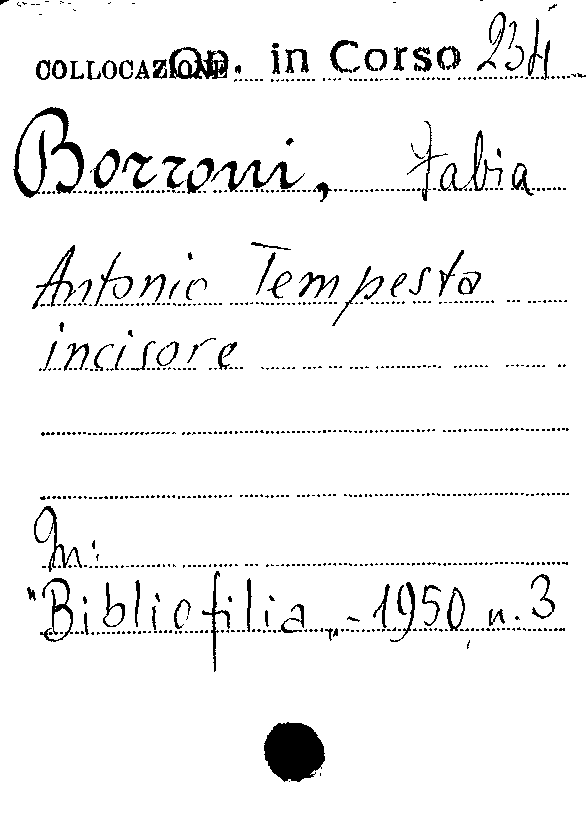 COLLOCAZIONE Op. in Corso 234
Borroni, Fabia
Antonio Tempesta
incisore
In:
"Bibliofilia„ - 1950, n. 3